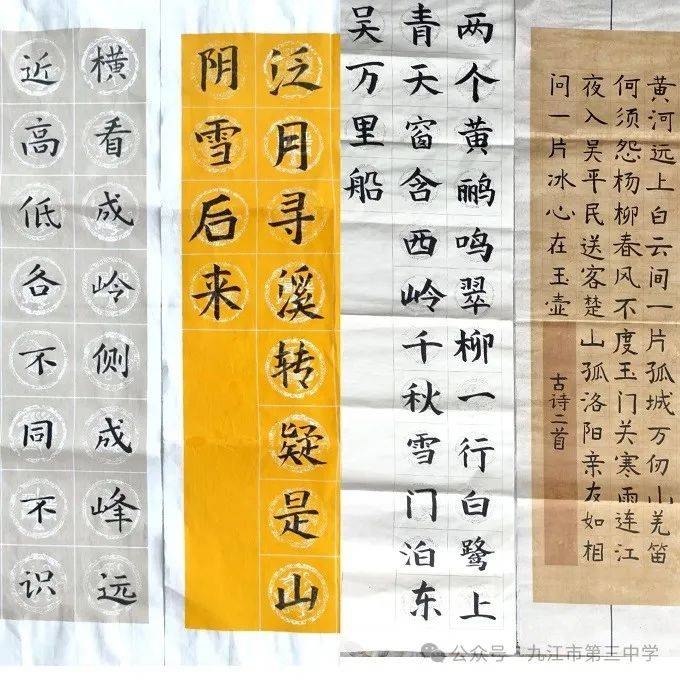 横看成岭侧成峰远
近高低各不同不识
泛月寻溪转疑是山
阴雪后来
两个黄鹂鸣翠柳一行白鹭上
青天窗含西岭千秋雪门泊东
吴万里船
黄河远上白云间一片孤城万仞山羌笛
何须怨杨柳春风不度玉门关寒雨连江
夜入吴平民送客楚山孤洛阳亲友如相
问一片冰心在玉壶
古诗二首
公众号·九江市第三中学